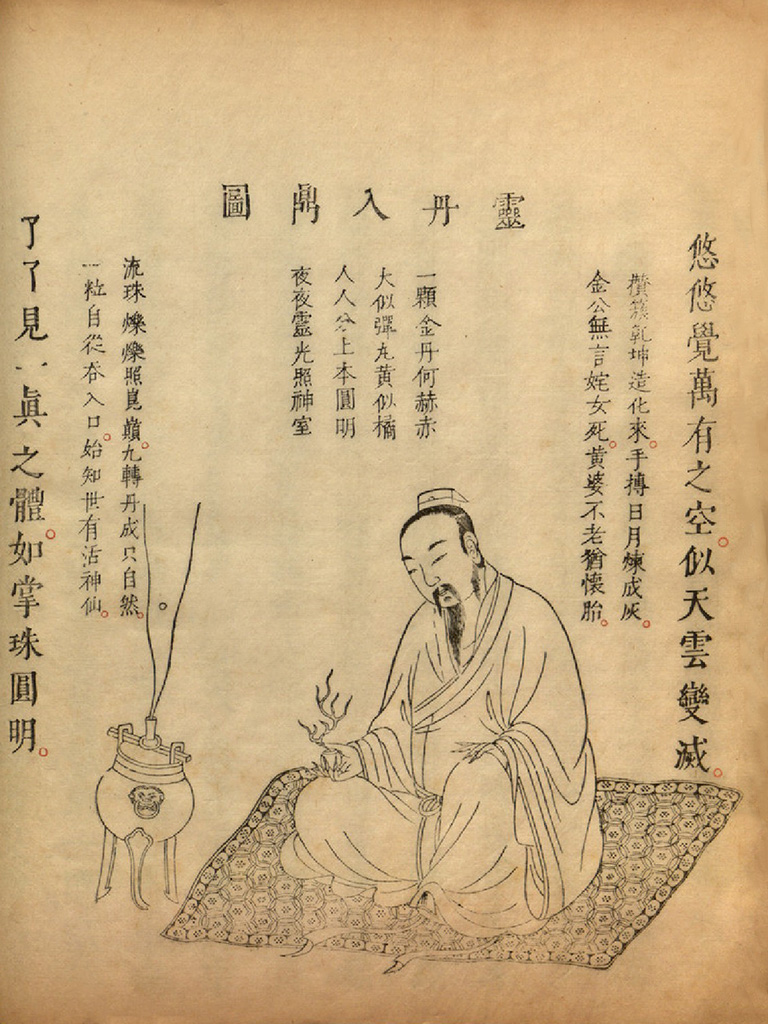 靈丹入鼎圖
悠悠覺萬有之空。似天雲變滅。
攢簇乾坤造化來。手摶日月煉成灰。
金公無言姹女死。黃婆不老猶懷胎。
一顆金丹何赫赤
大似彈丸黃似橘
人人分上本圓明
夜夜靈光照神室
流珠爍爍照崑巔。九轉丹成只自然。
一粒自從吞入口。始知世有活神仙。
了了見一眞之體。如掌珠圓明。